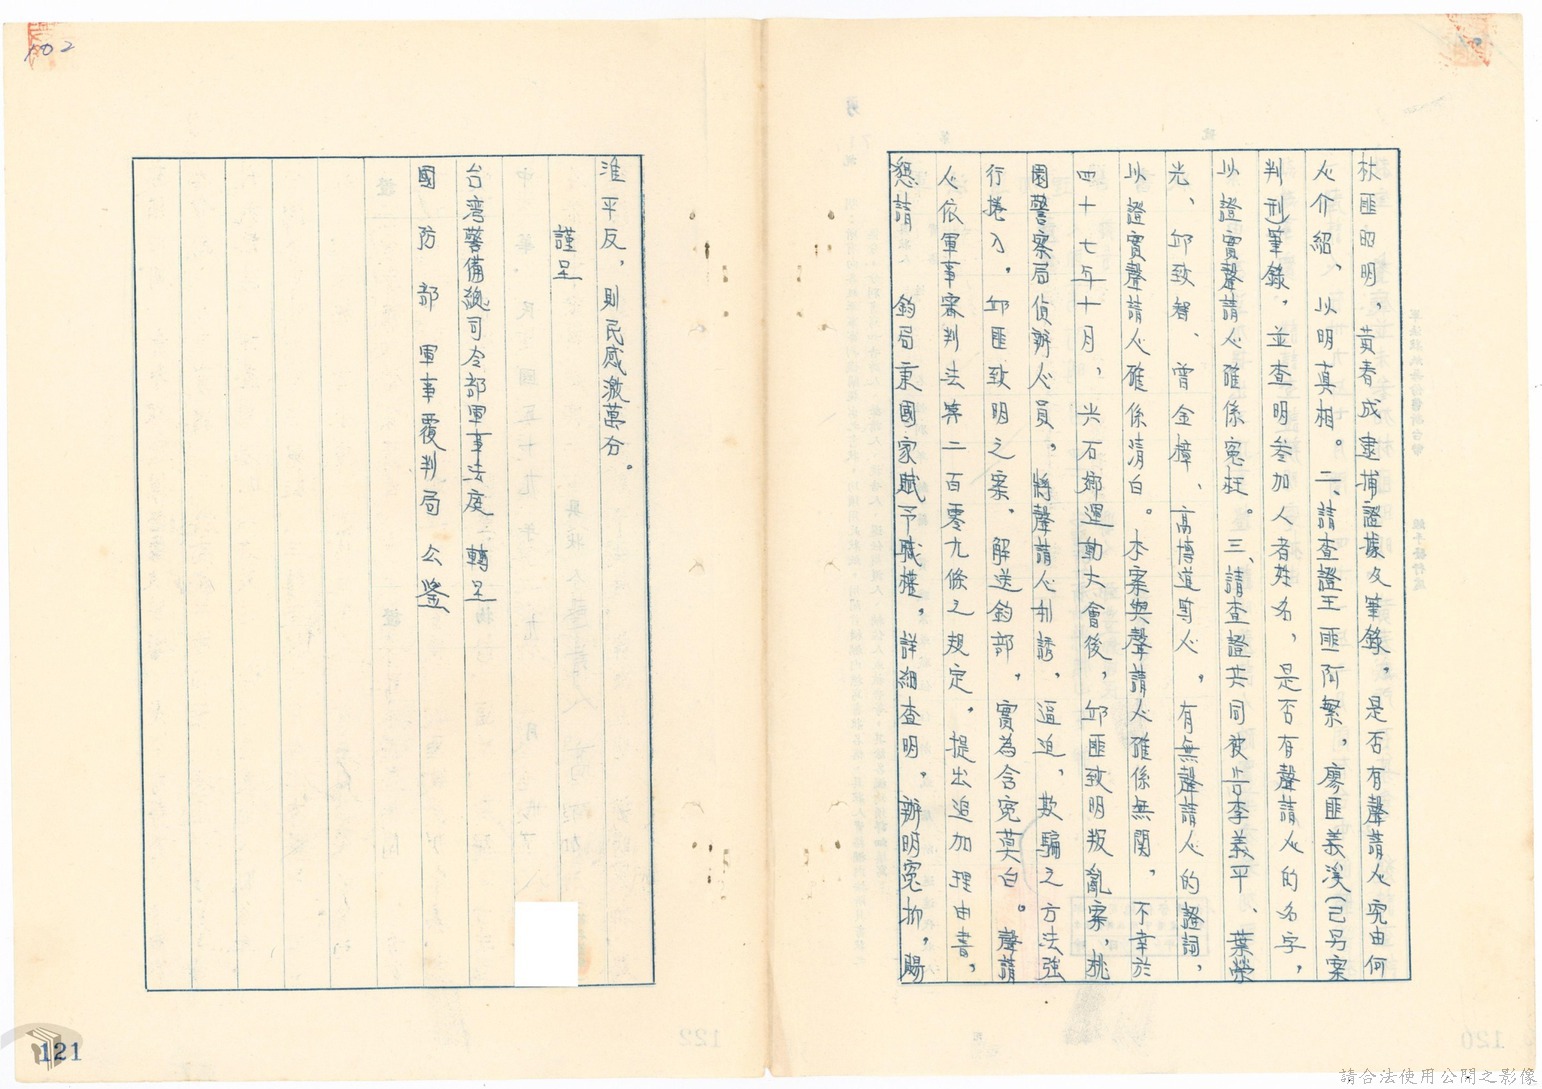 102
林匪昭明，黃春成逮捕證據及筆錄。是否有聲請人究由何
人介紹、以明真相。二、請查證王匪阿繁，廖匪義溪(已另案
判刑筆錄，並查明參加人者姓名，是否有聲請人的名字，
以證實聲請人確係冤枉。三、請查證共同被告李義平、葉榮
光、邱致智、曾金樟、高博道等人，有無聲請人的證詞，
以證實聲請人確係清白。本案與聲請人確係無關，不幸於
四十七年十月，尖石鄉運動大會後，邱匪致明叛亂案，桃
園警察局偵辦人員。將聲請人利誘，逼迫、欺騙之方法強
行捲入。邱匪致明之案。解送鈞部，實為含冤莫白。聲請
人依軍事審判法第二百零九條之規定。提出追加理由書，
懇請　鈞局秉國家賦予職權，詳細查明，辦明冤抑，賜
准平反，則民感激萬分。
謹呈
台湾警備總司令部軍事法庭　轉呈
國防部　軍事覆判局　公鑒
121
請合法使用公開之影像